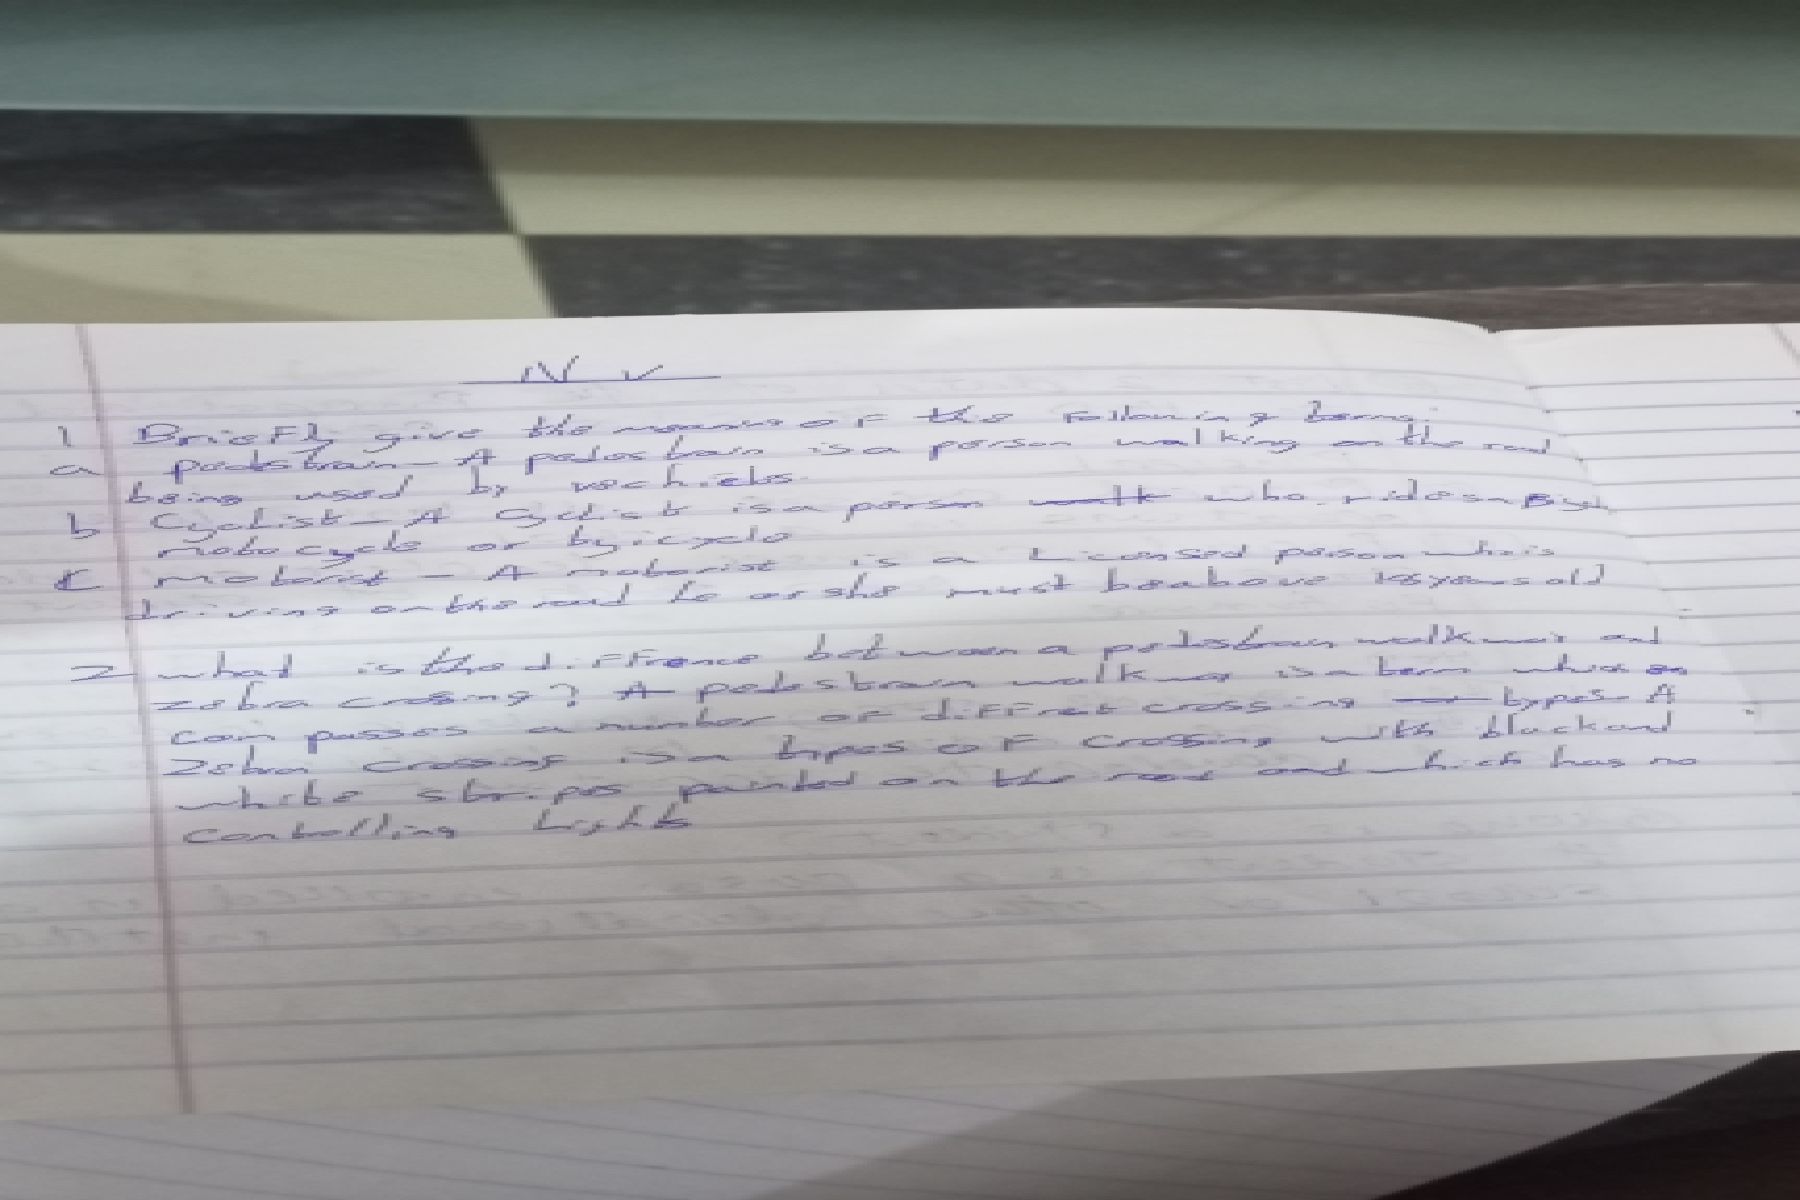 N V
1 Briefly give the meanins of the following terms:
a pedestrain - A pedestrain is a person walking on the road
being used by vechicles.
b Cyclist - A Cyclist is a person who rides a
motocycle or byicycle
c motorist - A motorist is a Licensed person who is
driving on the road he or she must be above 18 years old
2 what is the diffrence between a pedestrain walk way and
zebra crossing? A pedestrain walk way is a term which
can passes a number of diffrent crossing types. A
Zebra crossing is a types of crossing with black and
white stripes painted on the road and which has no
controlling Lights